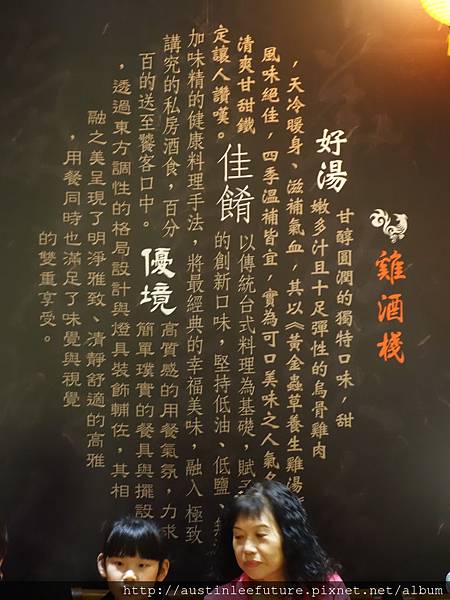 雞酒棧
好湯
甘醇圓潤的獨特口味，甜
嫩多汁且十足彈性的烏骨雞肉
，天冷暖身、滋補氣血，其以《黃金蟲草養生雞湯
風味絕佳，四季溫補皆宜，實為可口美味之人氣
清爽甘甜鐵
定讓人讚嘆。
佳餚
以傳統台式料理為基礎，賦予
的創新口味，堅持低油、低鹽、無
加味精的健康料理手法，將最經典的幸福美味，融入極致
講究的私房酒食，百分
百的送至饕客口中。
優境
高質感的用餐氣氛，力求
簡單璞實的餐具與擺設
，透過東方調性的格局設計與燈具裝飾輔佐，其相
融之美呈現了明淨雅致、清靜舒適的高雅
，用餐同時也滿足了味覺與視覺
的雙重享受。
http://austinleefuture.pixnet.net/album